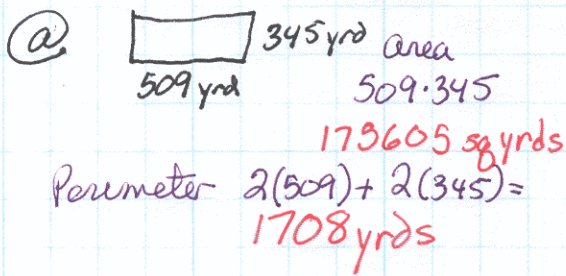 a 345 yrd area
509 yrd 509·345
175605 sq yrds
Perimeter 2(509) + 2(345) =
1708 yrds